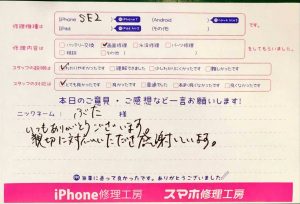 修理機種 □iPhone SE2 □Android
□iPad □その他
修理内容 □バッテリー交換 ☑画面修理 □水没修理 □パーツ修理
□その他 をしてもらいました。
スタッフの説明は ☑わかりやすかったです □理解できました □少しわかりにくかったです □難しかったです
スタッフの対応は ☑とても良かったです □良かったです □普通でした □良くなかったです
本日のご意見・ご感想など一言お願いします!
ニックネーム: ぶた 様
いつもありがとうございます
親切に対応いただき感謝しています。
非常に造って良かったです。ありがとうございました
iPhone修理工房 スマホ修理工房